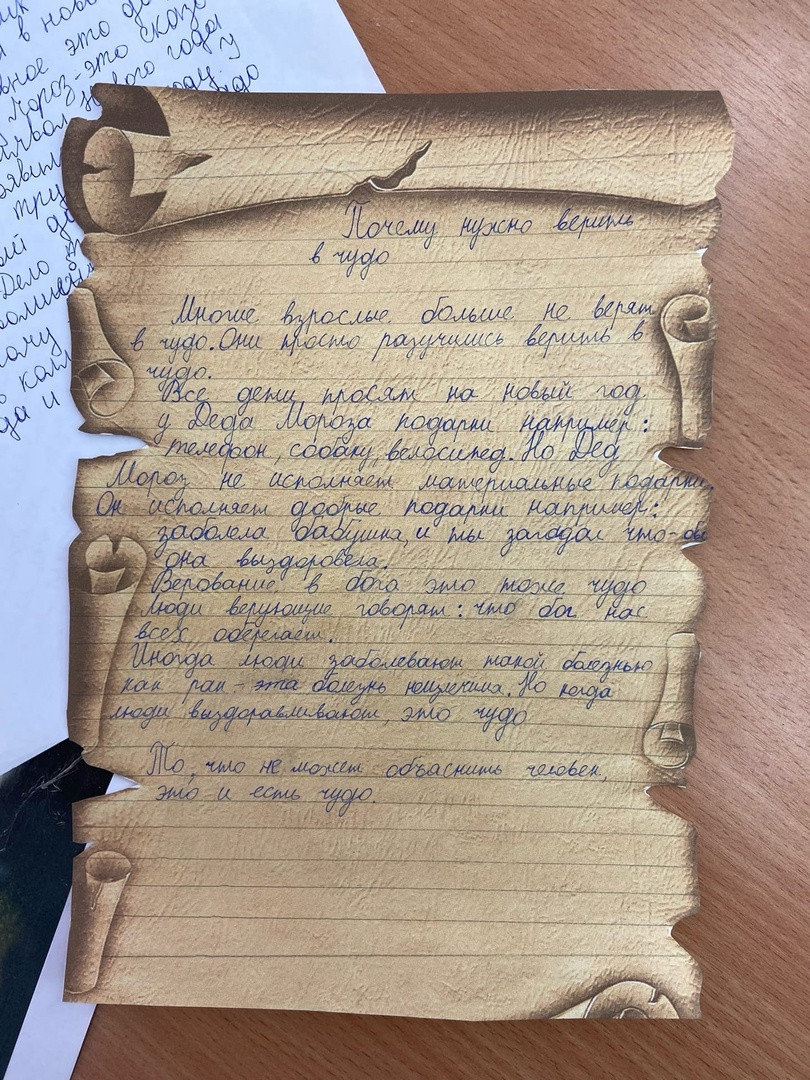 Почему нужно верить
в чудо
Многие взрослые больше не верят
в чудо. Они просто разучились верить в
чудо.
Все дети просят на новый год
у Деда Мороза подарки например:
телефон, собаку, велосипед. Но Дед
Мороз не исполняет материальные подарки.
Он исполняет добрые подарки например:
заболела бабушка, и ты загадал что-бы
она выздоровела.
Верование в бога это тоже чудо
люди верующие говорят: что бог нас
всех оберегает.
Иногда люди заболевают такой болезнью
как рак - эта болезнь неизлечима. Но когда
люди выздоравливают, это чудо
То, что не может объяснить человек,
это и есть чудо.
в ново
это
Мороз - это сказо
Нового года
году у
Дело